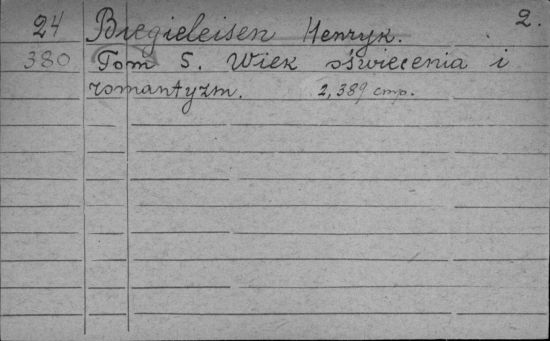 24 Biegieleisen Henryk. 2.
380 Tom 5. Wiek oświecenia i
romantyzm. 2,389 стр.